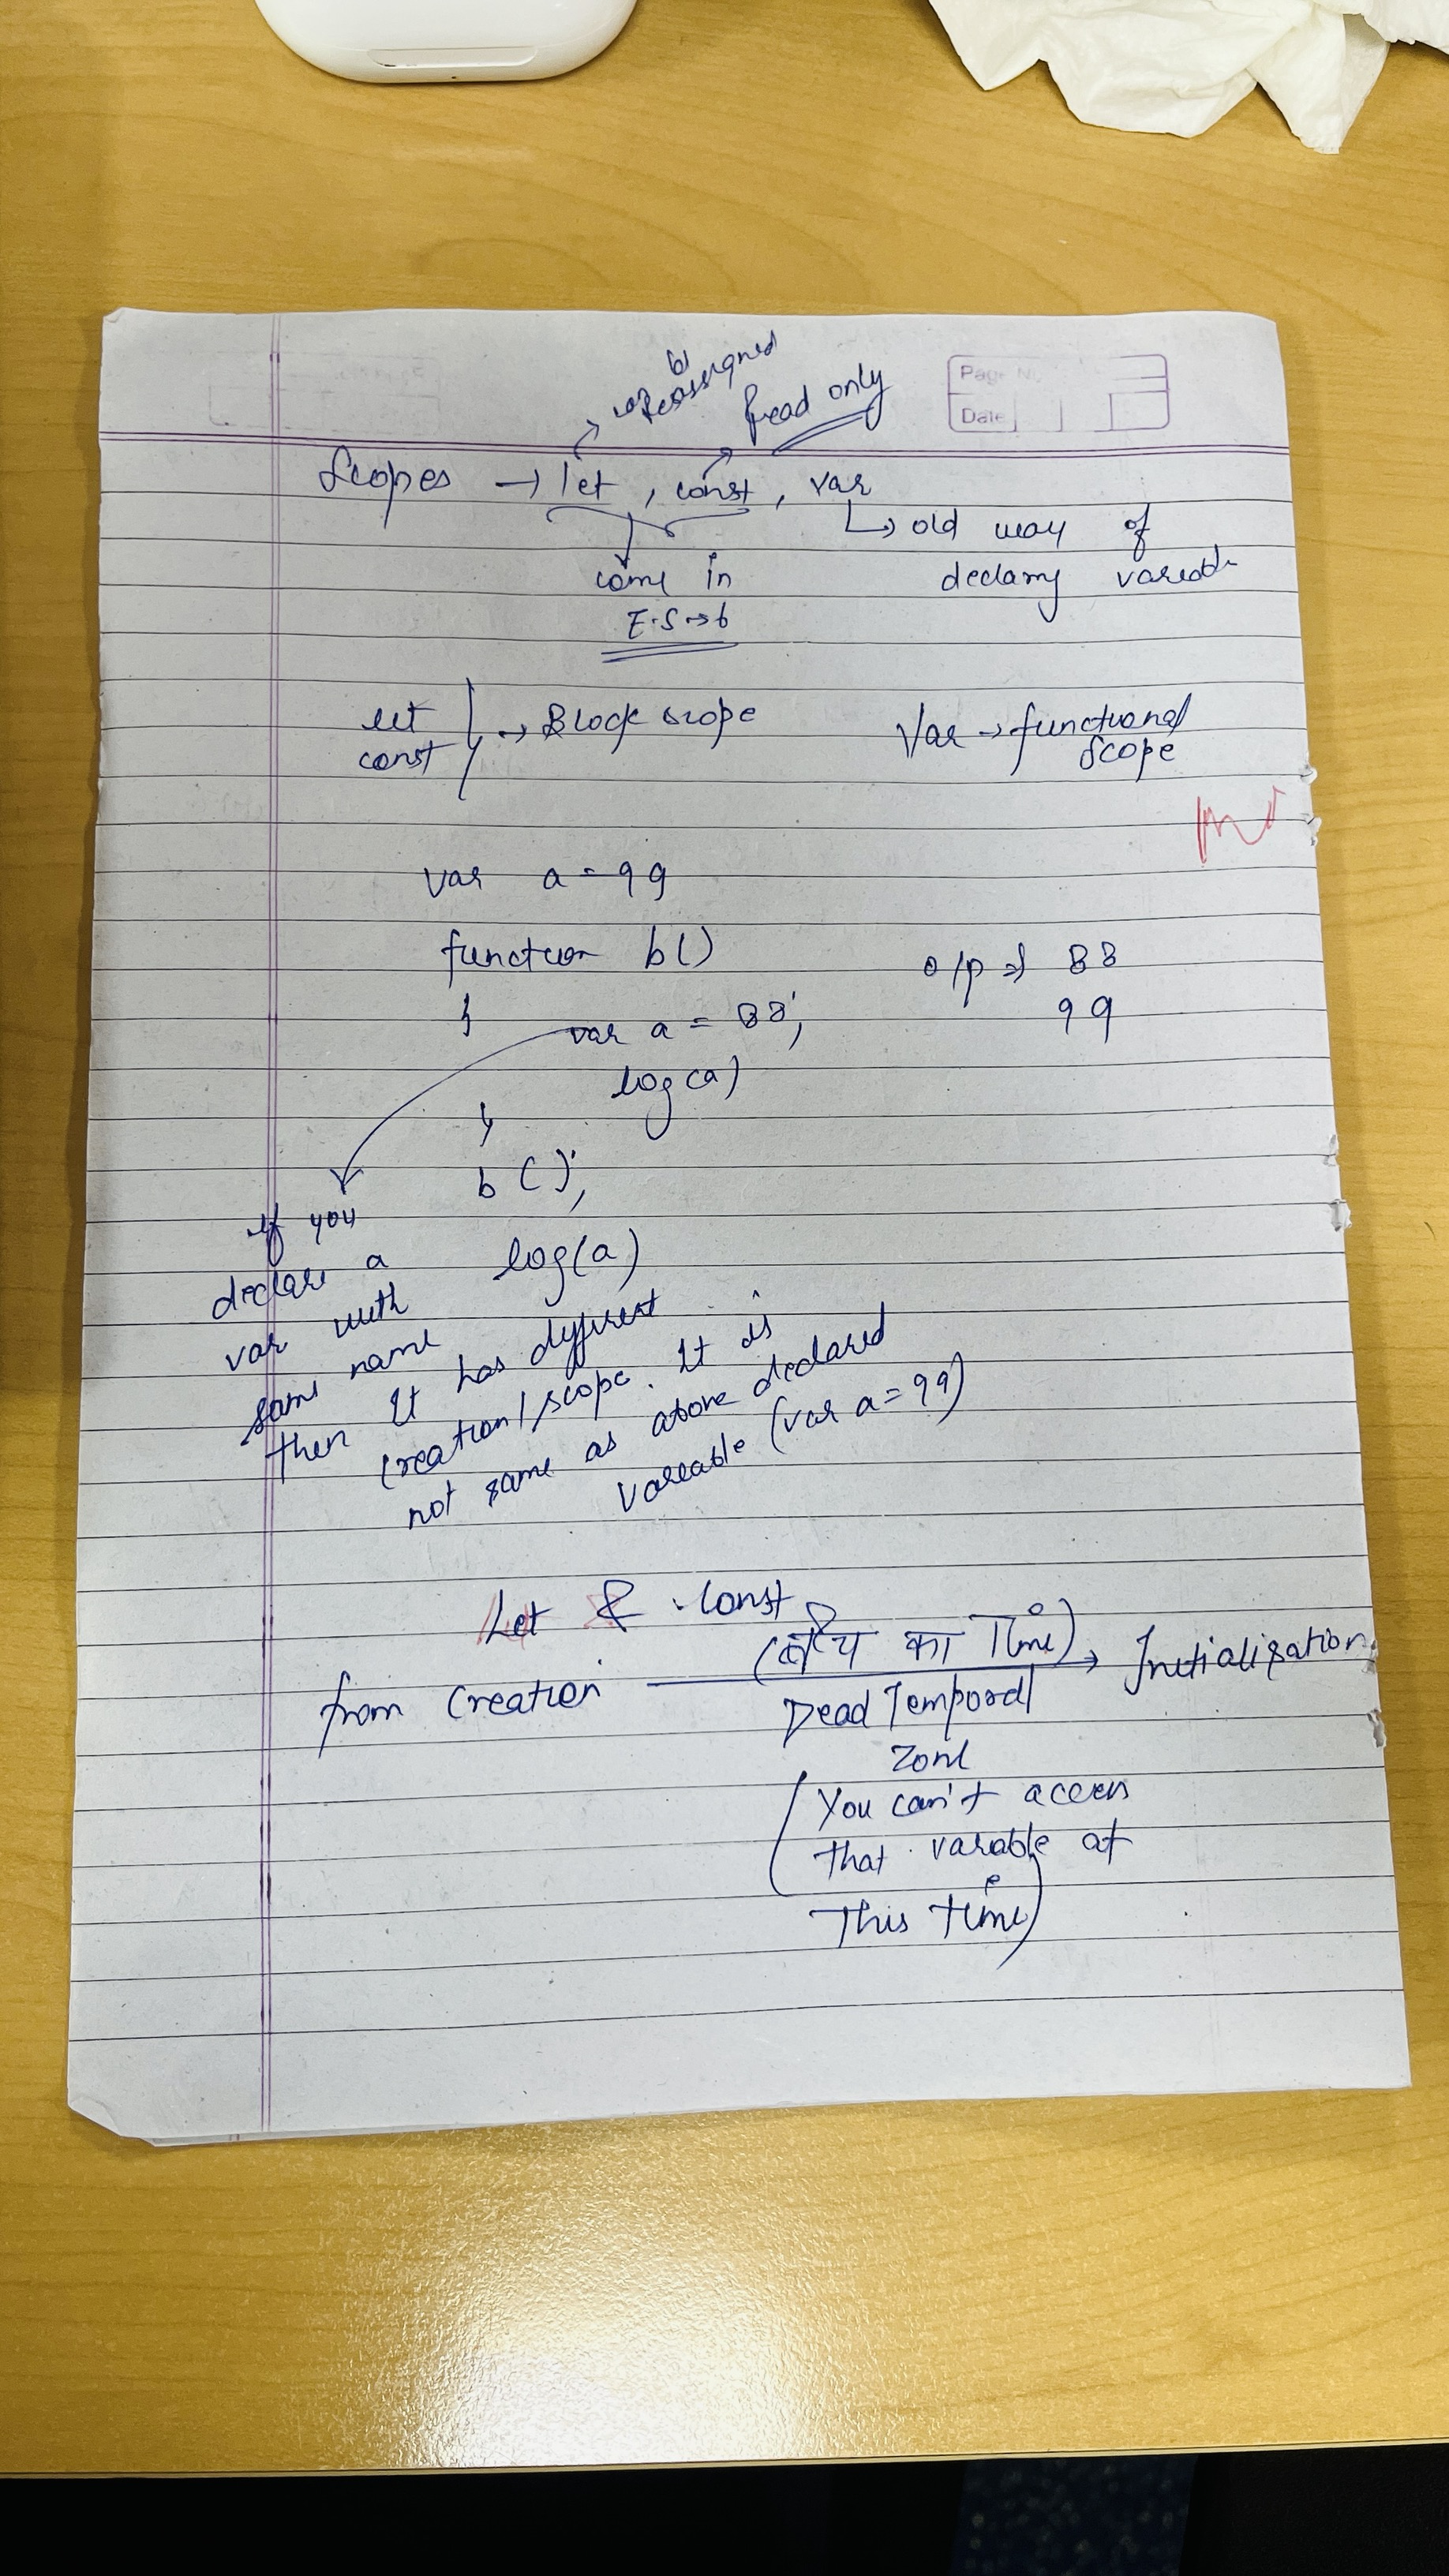 be
reassigned
Read only
Page No.
Date
Scopes → let, const, var
↳ old way of
declaring variable
come in
E.S → 6
let
const
→ Block scope
Var → functional
scope
var a = 99
function b()
{
var a = 88;
log(a)
}
b();
log(a)
o/p ⇒ 88
99
if you
declare a
var with
same name
then it has different
creation/scope. It is
not same as above declared
Variable (var a = 99)
Let & Const
from Creation → Initialization
(बीच का Time)
Dead Temporal
Zone
(You can't access
that variable at
This time)